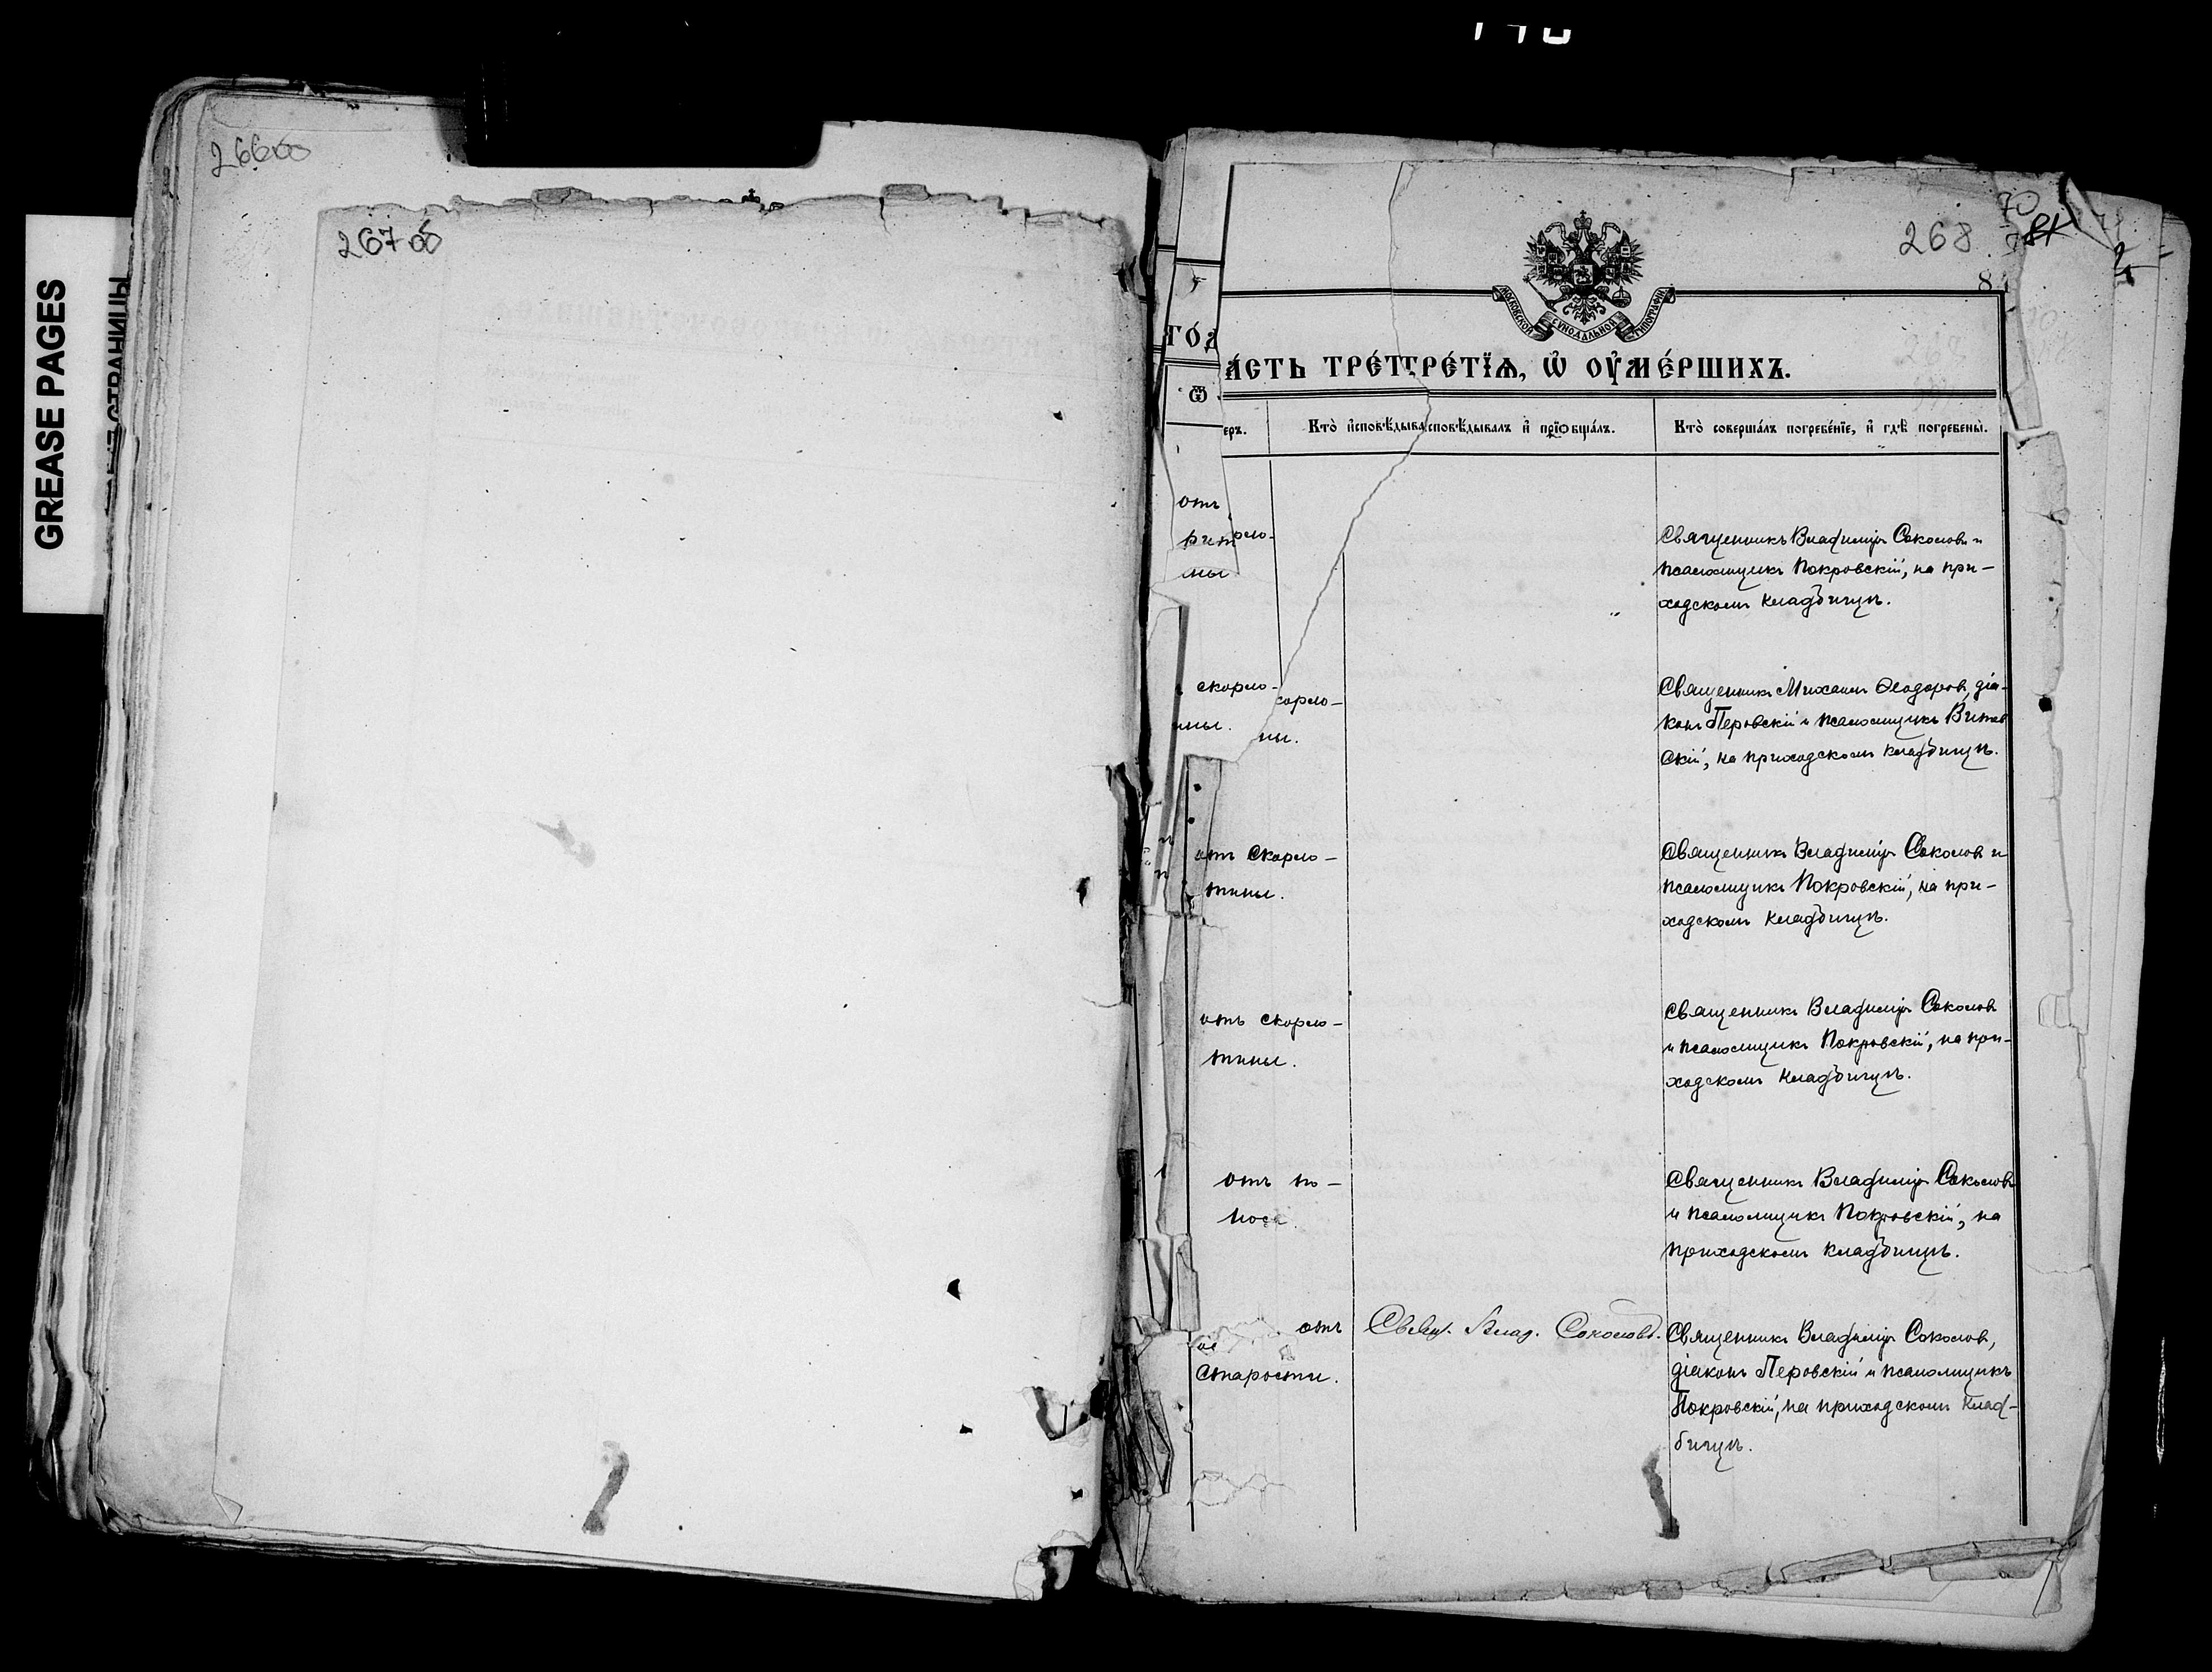 GREASE PAGES
266об
267 об
268
МОСКОВСКОЙ СУНОДАЛЬНОЙ ТИПОГРАФІИ
а́сть тре́т тре́тїѧ, ѡ҆ оу҆ме́ршихъ.
еръ.
Кто̀ и҆сповѣ́дыва сповѣ́дывалъ и҆ прїѡбща́лъ.
Кто̀ соверша́лъ погребе́нїе, и҆ гдѣ̀ погребены̀.
отъ
Священникъ Владиміръ Соколовъ и
псаломщикъ Покровскій, на при-
ходскомъ кладбищѣ.
скарла-
тины.
Священникъ Михаилъ Ѳеодоровъ, діа-
конъ Перовскій и псаломщикъ
скій, на приходскомъ кладбищѣ.
отъ скарла-
тины.
Священникъ Владиміръ Соколовъ и
псаломщикъ Покровскій, на при-
ходскомъ кладбищѣ.
отъ скарла-
тины.
Священникъ Владиміръ Соколовъ
и псаломщикъ Покровскій, на при-
ходскомъ кладбищѣ.
отъ по-
носа.
Священникъ Владиміръ Соколовъ
и псаломщикъ Покровскій, на
приходскомъ кладбищѣ.
отъ
старости.
Свящ. Влад. Соколовъ.
Священникъ Владиміръ Соколовъ,
діаконъ Перовскій и псаломщикъ
Покровскій, на приходскомъ клад-
бищѣ.